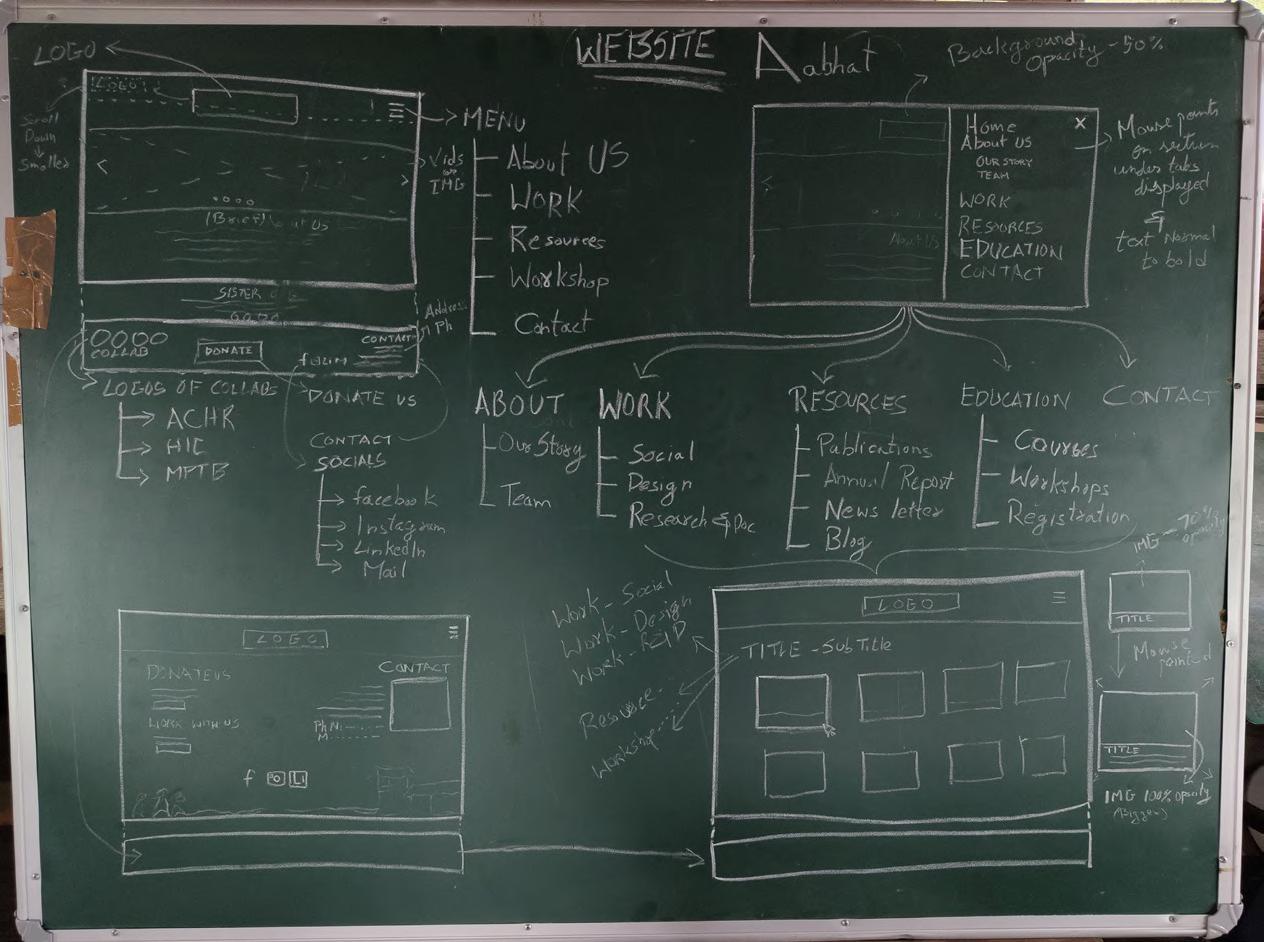 WEBSITE
Aabhat
LOGO
LOGO
Scroll
Down
Smaller
Vids
or
IMG
(Brief) About Us
SISTER
COLLAB
DONATE
CONTACT
Address
Ph
LOGOS OF COLLABS
ACHR
HIC
DONATE US
CONTACT
SOCIALS
facebook
Instagram
LinkedIn
Mail
MENU
About US
WORK
Resources
Workshop
Contact
Background
Opacity - 50%
Home
X
About US
OUR STORY
TEAM
WORK
RESOURCES
EDUCATION
CONTACT
About US
Mouse points
on section
under tabs
displayed
&
text Normal
to bold
ABOUT
Our Story
Team
WORK
Social
Design
Research & Doc
RESOURCES
Publications
Annual Report
News letter
Blog
EDUCATION
Courses
Workshops
Registration
CONTACT
LOGO
DONATE US
WORK WITH US
CONTACT
Ph N:
M:
f
Li
Work - Social
Work - Design
Work - R&D
Resource
Workshop
LOGO
TITLE - Sub Title
IMG - 70%
opacity
TITLE
Mouse
pointed
TITLE
IMG 100% opacity
(Bigger)